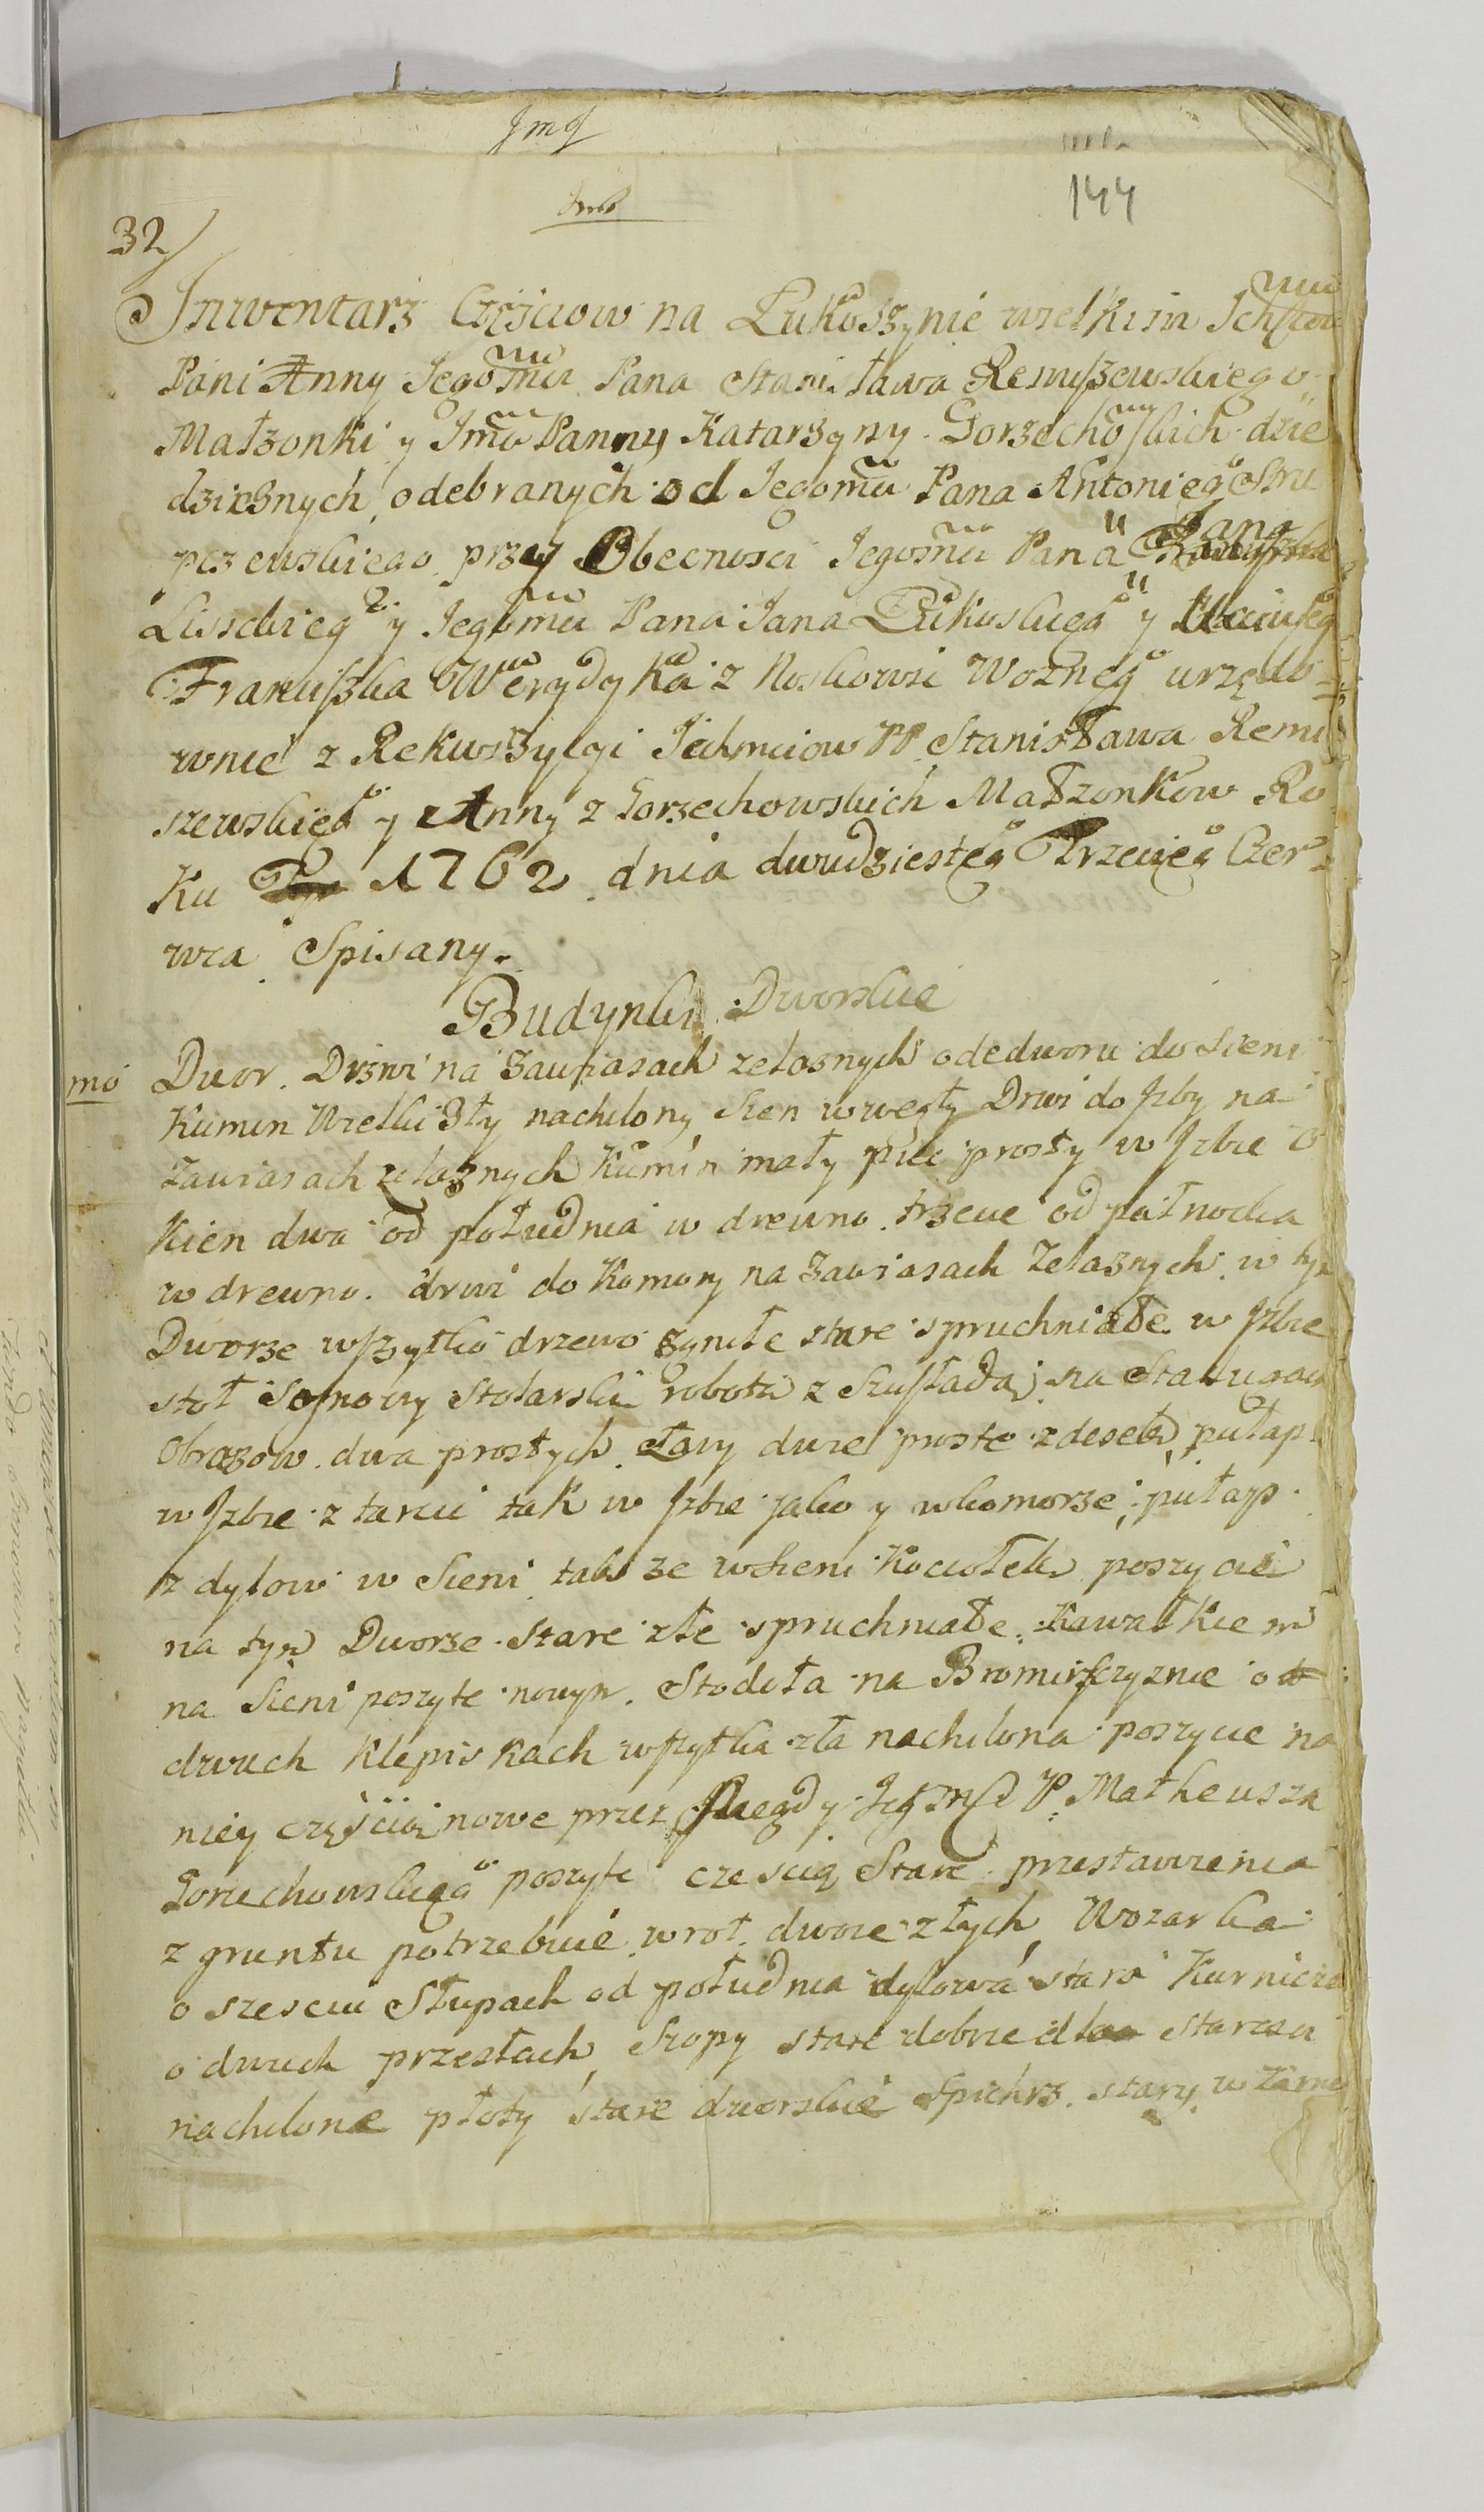 Jmć
144
32
Inwentarz Częsciow na Łukoszynie wielkim Ichmciow
Pani Anny Iegomci Pana Stanisława Remiszewskiego
Małzonki y Jmci Panny Katarzyny Gorzechoskich dzie
dzicznych odebranych od Iegomci Pana Antonieg Stru
pczewskiego przy Obecnosci Iegomci Pana Jana
Lissckieg y Iegomci Pana Jana Łukoskieg y
Franciszka z Noskowic Wozneg urzędo
wnie z Rekwizycyi Ichmciow PP Stanisława Remi
szewskieg y Anny z Gorzechowskich Małzonkow Ro
Ku 1762 dnia dwudziesteg Trzecieg Czer
wca Spisany.
Budynki Dworskie
mo Dwor. Drzwi na zawiasach zelaznych odedworu do Sieni
Kumin Wielki Zły nachilony Sien w węgły Drwi do Izby na
zawiasach zelaznych Kumin mały piec prosty w Izbie o
Kien dwa od południa w drewno trzecie od pułnocka
w drewno. drwi do Komory na zawiasach Zelaznych w tym
Dworze wszytko drzewo zgniłe stare spruchniałe w Izbie
stoł Sosnowy Stolarski roboti z Szufladą na Stalugach
Obrazow dwa prostych Ławy dwie proste z desek pułap
w Izbie z tarcic tak w Izbie jako y w komorze; pułap
z dylow w Sieni takze w Sieni Kociołek poszycie
na tym Dworze Stare złe spruchniałe Kawałkiem
na Sieni poszyte nowym. Stodoła na Bromirszczyznie o
dwuch Klepiskach wszytka zła nachilona poszycie na
niey częscią nowe przez niegdy Jegomć P. Matheusza
Gorzechowskieg poszyte czescią Stare przestawienia
z gruntu potrzebuie wrot dwoie złych Wozarka
o szesciu Słupach od południa dylowa stara Kurniczek
o dwuch przesłach Szopy stare dobrze dla Starosci
nachilone płoty stare dworskie Spichrz stary w Zamek